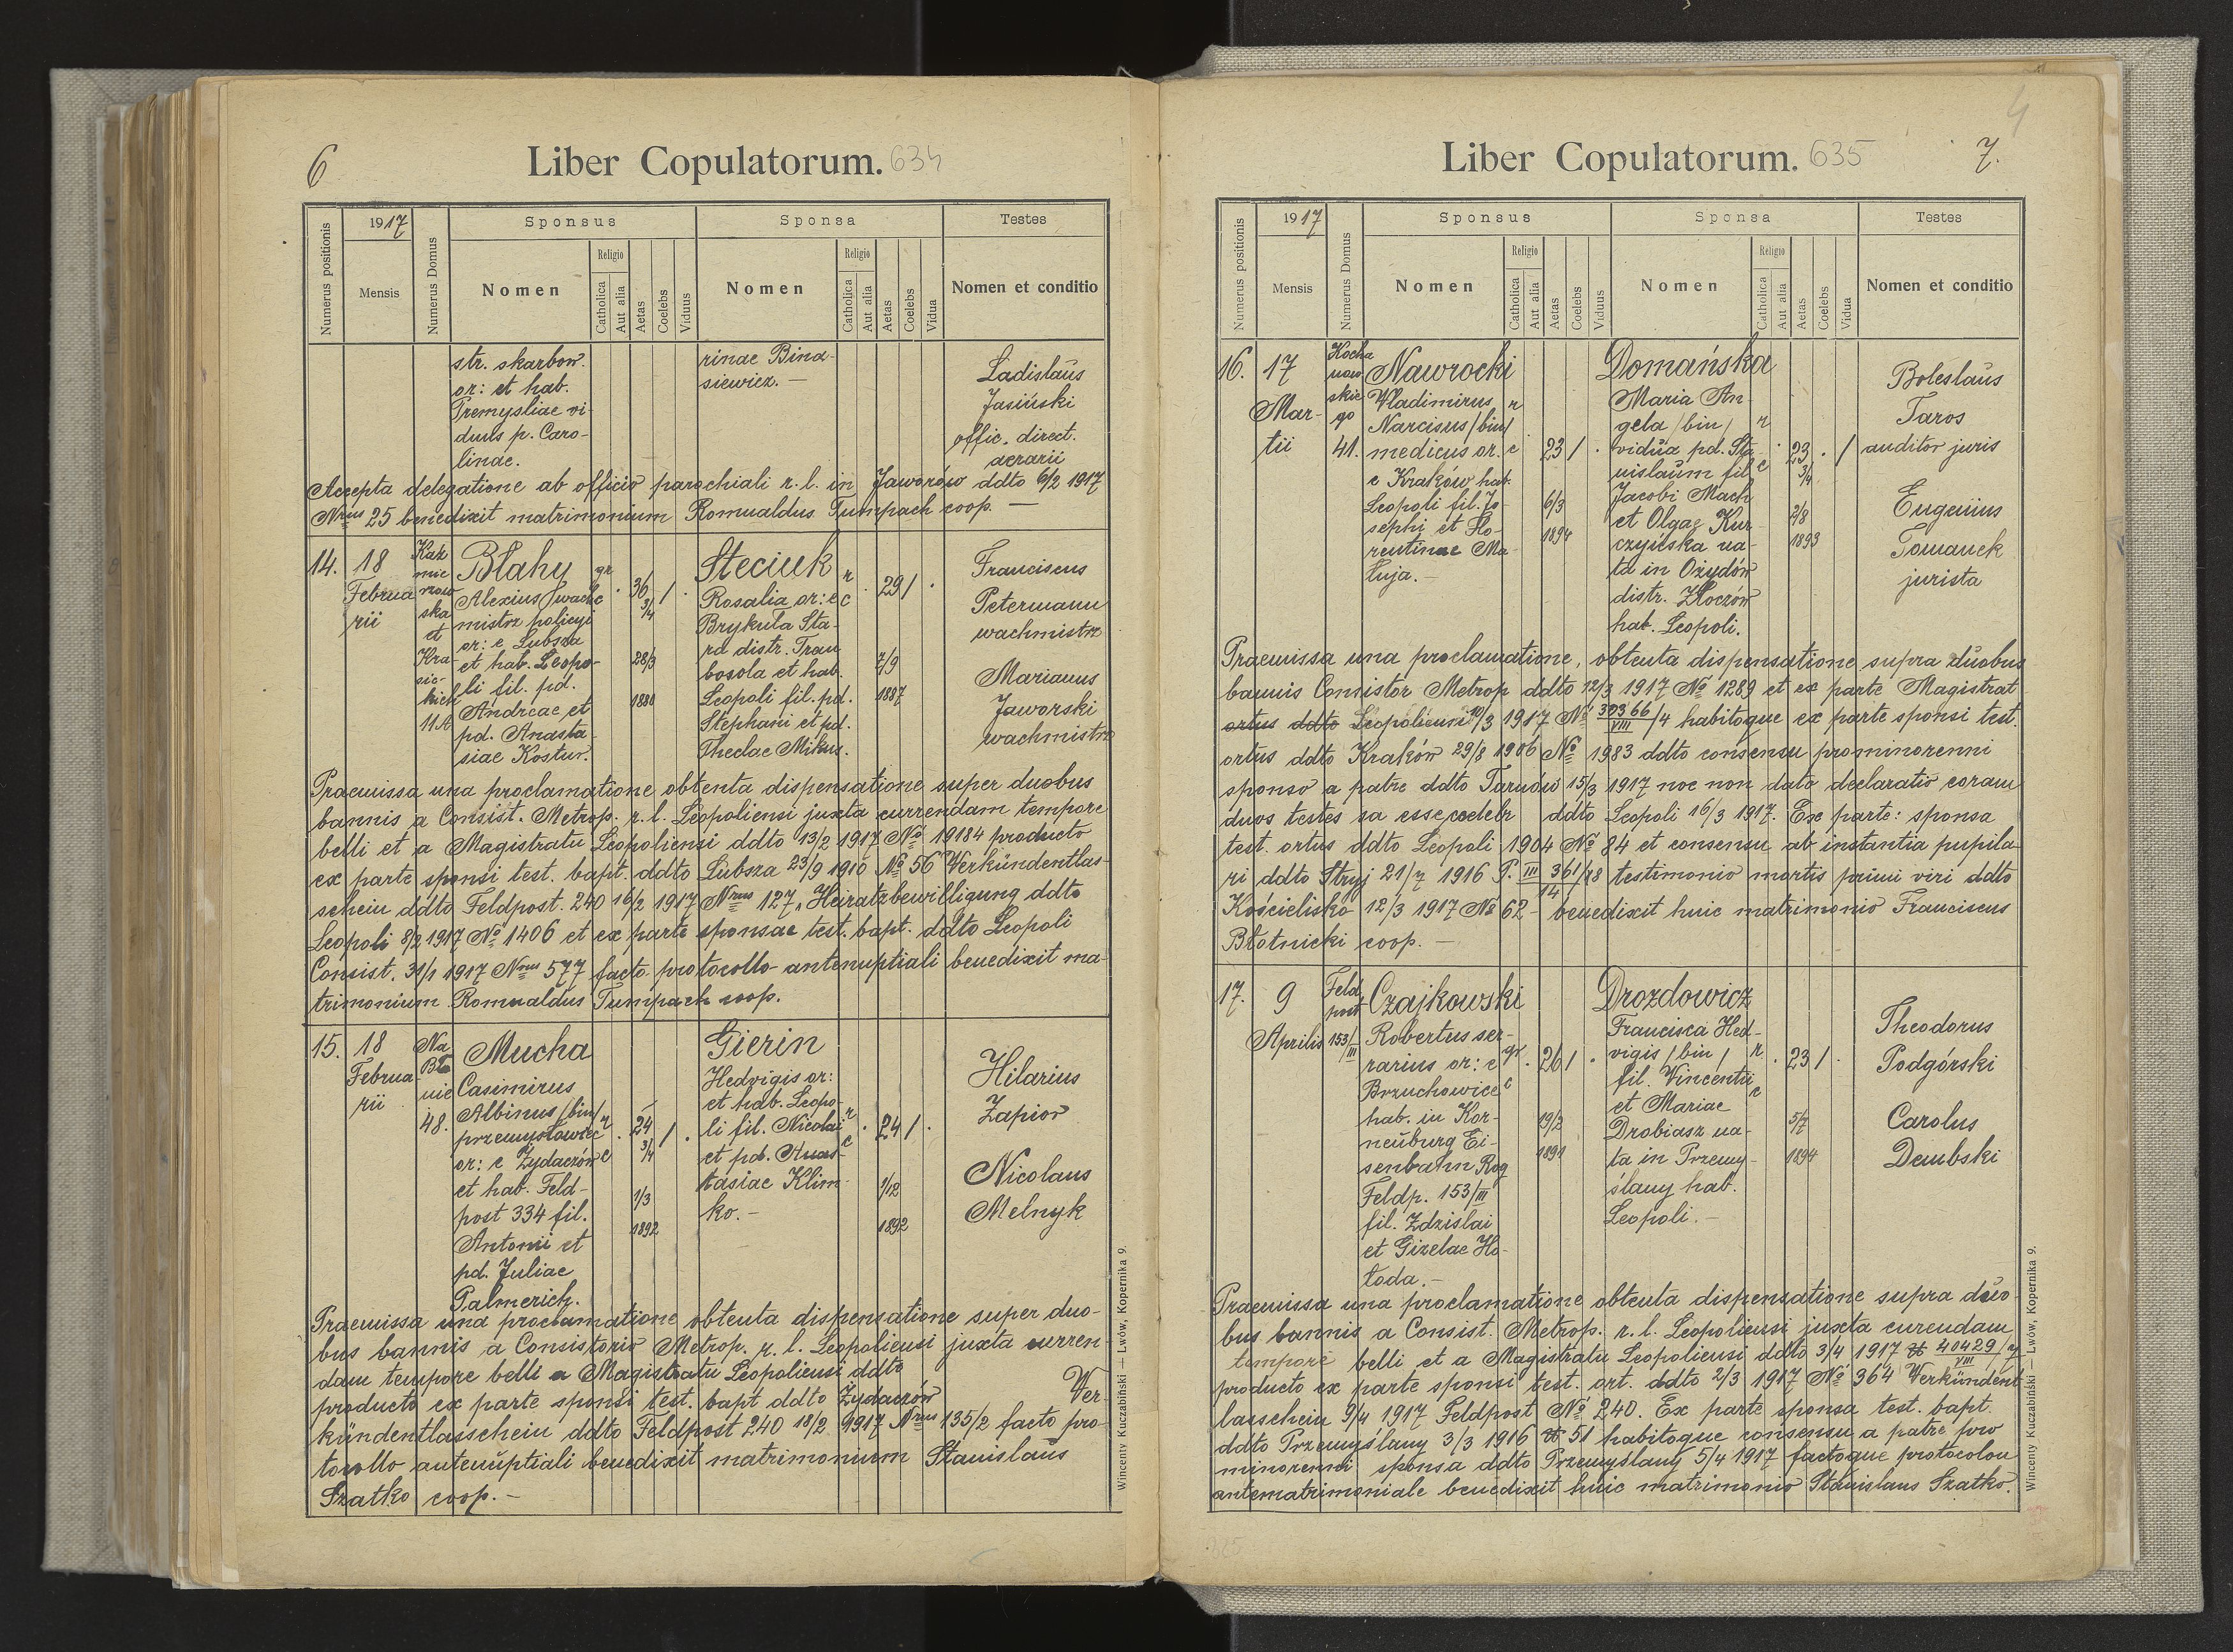 6
Liber Copulatorum. 634
Numerus positionis
1917
Mensis
Numerus Domus
Sponsus
Nomen
Religio
Catholica
Aut alia
Aetas
Coelebs
Viduus
Sponsa
Nomen
Religio
Catholica
Aut alia
Aetas
Coelebs
Vidua
Testes
Nomen et conditio
str. skarbow.
or: et hab.
Premysliae vi-
duus p. Caro-
linae.
rinae Bina-
siewicz. —
Ladislaus
Jasiński
offic. direct.
aerarii
Accepta delegatione ab officio parochiali r. l. in Jaworów ddto 6/2 1917
Nrus 25 benedixit matrimonium Romualdus Tumpach coop. —
14.
18
Februa
rii
Kaz
mie
rzow
ska
et
Kra-
sic-
kich
11A
Błahy
Alexius /wach
mistrz policyi
or: e Lubsza
et hab. Leopo-
li fil. pd.
Andreae et
pd. Anasta
siae Kostur.
gr
c
36
3/4
28/3
1880
/
Steciuk
Rosalia or: e
Brykuła Sta-
ra distr. Trem
bosola et hab.
Leopoli fil. pd.
Stephani et pd.
Theclae Mikus.
r
c
29
/
7/9
1887
Franciscus
Petermann
wachmistrz
Marianus
Jaworski
wachmistrz
Praemissa una proclamatione obtenta dispensatione super duobus
bannis a Consist. Metrop. r. l. Leopoliensi juxta currendam tempore
belli et a Magistratu Leopoliensi ddto 13/2 1917 No 19184 producto
ex parte sponsi test. bapt. ddto Lubsza 23/9 1910 No 56 Verkündentlas-
schein ddto Feldpost. 240 16/2 1917 Nrus 127 „Heiratzbewilligung ddto
Leopoli 8/2 1917 No 1406 et ex parte sponsae test. bapt. ddto Leopoli
Consist. 31/1 1917 Nrus 577 facto protocollo antenuptiali benedixit ma-
trimonium Romualdus Tumpach coop.
15.
18
Februa-
rii
Na
Bło
nie
48.
Mucha
Casimirus
Albinus /bin/
przemysłowiec
or: e Żydaczów
et hab. Feld-
post 334 fil.
Antonii et
pd. Juliae
Palmerich.
r
c
24
3/4
1/3
1892
/
Gierin
Hedvigis or:
et hab. Leopo-
li fil. Nicolai
et pd. Anas-
tasiae Klim-
ko. —
r
c
24
/
1/12
1892
Hilarius
Zapior
Nicolaus
Melnyk
Praemissa una proclamatione obtenta dispensatione super duo-
bus bannis a Consistorio Metrop. r. l. Leopoliensi juxta curren-
dam tempore belli a Magistratu Leopoliensi ddto
producto ex parte sponsi test. bapt ddto Żydaczów Ver-
kündentlasschein ddto Feldpost 240 18/2 1917 Nrus 135/2 facto pro-
tocollo antenuptiali benedixit matrimonium Stanislaus
Szatko coop. —
Wincenty Kuczabiński — Lwów, Kopernika 9.
4
Liber Copulatorum. 635
7.
Numerus positionis
1917
Mensis
Numerus Domus
Sponsus
Nomen
Religio
Catholica
Aut alia
Aetas
Coelebs
Viduus
Sponsa
Nomen
Religio
Catholica
Aut alia
Aetas
Coelebs
Vidua
Testes
Nomen et conditio
16.
17
Mar-
tii
Kocha
now
skie
go
41.
Nawrocki
Wladimirus
Narcisus /bin/
medicus or.
e Kraków hab.
Leopoli fil. Jo-
sephi et Flo-
rentinae Ma-
łuja. —
r
c
23
/
6/3
1894
Domańska
Maria An-
gela /bin/
vidua pd. Sta-
nislaum fil
Jacobi Mach
et Olgae Kur-
czyńska na-
ta in Ożydów
distr. Złoczów
hab. Leopoli.
r
c
23
3/4
/
2/8
1893
Boleslaus
Taros
auditor juris
Eugenius
Tomanek
jurista
Praemissa una proclamatione, obtenta dispensatione supra duobus
bannis Consistor Metrop ddto 12/3 1917 No 1289 et ex parte Magistrat
ortus ddto Leopoliensi 10/3 1917 No 30366/VIII/4 habitoque ex parte sponsi test.
ortus ddto Kraków 29/8 1906 No 1983 ddto consensu prominorenni
sponso a patre ddto Tarnów 15/3 1917 nec non dato declaratio coram
duos testes sa esse coelebr ddto Leopoli 16/3 1917. Ex parte: sponsa
test. ortus ddto Leopoli 1904 No 84 et consensu ab instantia pupila-
ri ddto Stryj 21/7 1916 P. III 361/14/18 testimonio mortis primi viri ddto
Kościelisko 12/3 1917 No 62 — benedixit huic matrimonio Franciscus
Błotnicki coop. —
17.
9
Aprilis
Feld
post
153/III
Czajkowski
Robertus ser-
rarius or: e
Brzuchowice
hab. in Kor-
neuburg Ei-
senbahn Rog
Feldp. 153/III
fil. Zdzislai
et Gizelae Ho-
łoda. —
gr
c
26
/
19/2
1891
Drozdowicz
Francisca Hed-
vigis /bin/
fil. Vincentii
et Mariae
Drobiasz na-
ta in Przemy-
ślany hab.
Leopoli. —
r
c
23
/
5/7
1894
Theodorus
Podgórski
Carolus
Dembski
Praemissa una proclamatione obtenta dispensatione supra duo-
bus bannis a Consist. Metrop. r. l. Leopoliensi juxta curendam
tempore belli et a Magistratu Leopoliensi ddto 3/4 1917 № 40429/VIII/7
producto ex parte sponsi test. ort. ddto 2/3 1917 No 364 Verkündent
lasschein 9/4 1917 Feldpost No 240. Ex parte sponsa test. bapt.
ddto Przemyślany 3/3 1916 № 51 habitoque consensu a patre pro
minorenni sponsa ddto Przemyślany 5/4 1917 factoque protocolou
antematrimoniale benedixit huic matrimonio Stanislaus Szatko.
Wincenty Kuczabiński — Lwów, Kopernika 9.